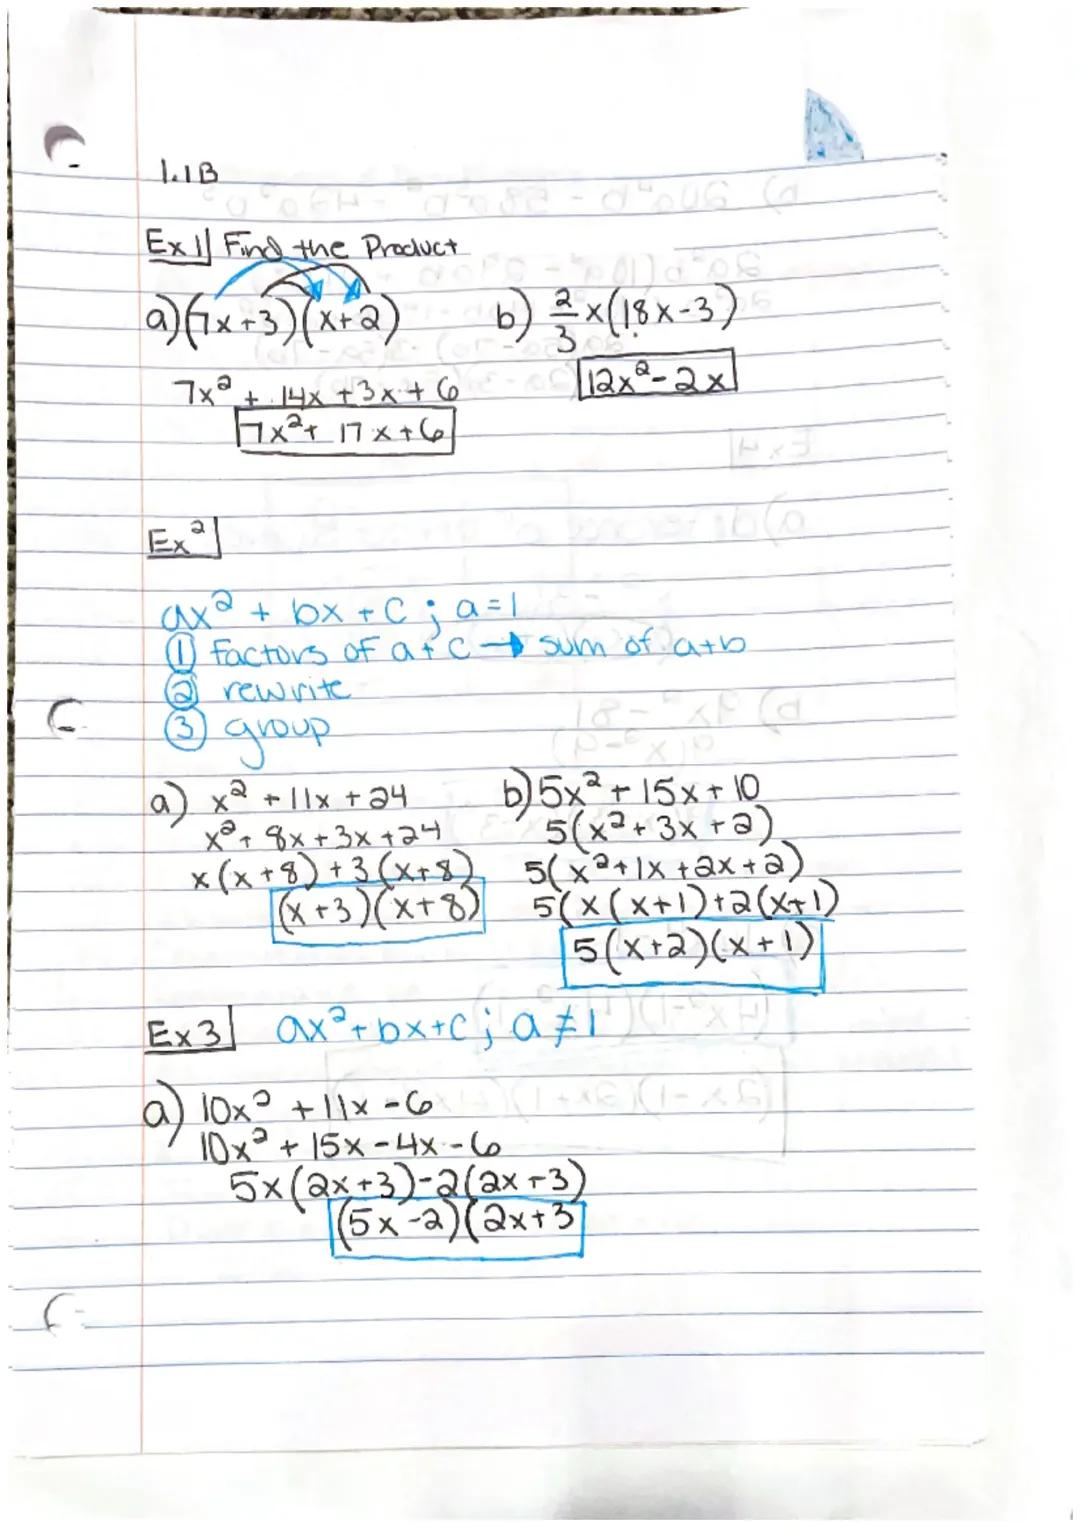 1.1B
Ex 1 Find the Product
a) (7x+3)(x+2)
7x² + 14x + 3x + 6
7x² + 17x + 6
b) 2/3 x(18x-3)
12x² - 2x
Ex 2
ax² + bx + c ; a = 1
① factors of a + c → sum of a+b
② rewrite
③ group
a) x² + 11x + 24
x² + 8x + 3x + 24
x(x+8) + 3(x+8)
(x+3)(x+8)
b) 5x² + 15x + 10
5(x² + 3x + 2)
5(x² + 1x + 2x + 2)
5(x(x+1)+2(x+1)
5(x+2)(x+1)
Ex 3 ax² + bx + c ; a ≠ 1
a) 10x² + 11x - 6
10x² + 15x - 4x - 6
5x(2x+3)-2(2x+3)
(5x-2)(2x+3